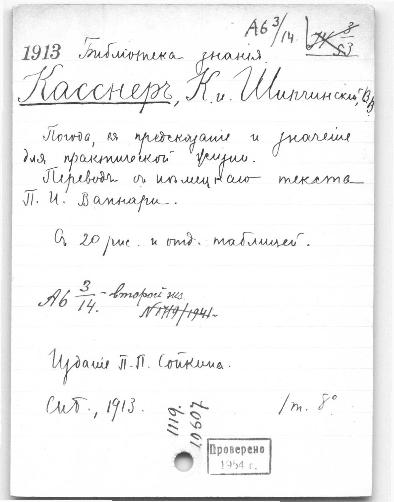 Аб 3/14.
1913 Библіотека знанія.
Касснеръ, К. и Шипчинскій, ВВ
Погода, ея предсказаніе и значеніе
для практической жизни.
Переводъ съ нѣмецкаго текста
П. И. Ваннари.
Съ 20 рис. и отд. таблицей.
Аб 3/14. - второй экз.
N 1719/1941
Изданіе П. П. Сойкина.
Спб., 1913. 1т. 8°
1119.
10907
Проверено
1954 г.